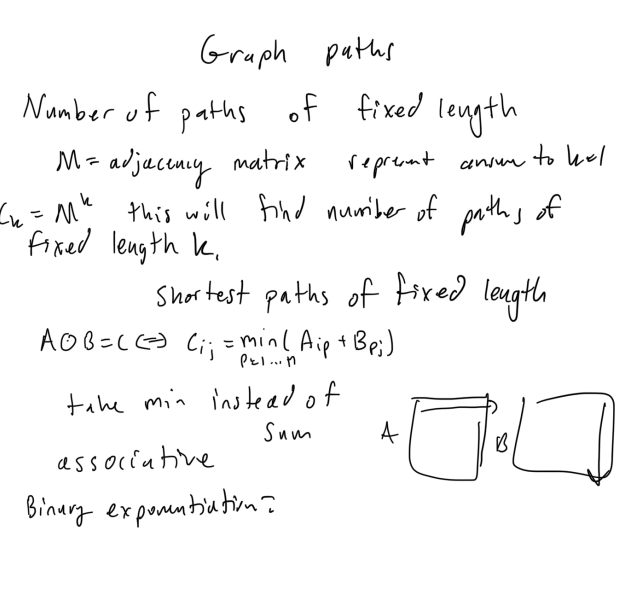 Graph paths
Number of paths of fixed length
M = adjacency matrix represent answer to k=1
C_k = M^k this will find number of paths of
fixed length k.
Shortest paths of fixed length
A ⊙ B = C ⟺ C_ij = min_{p=1...n} (A_ip + B_pj)
take min instead of
sum
A B
associative
Binary exponentiation?